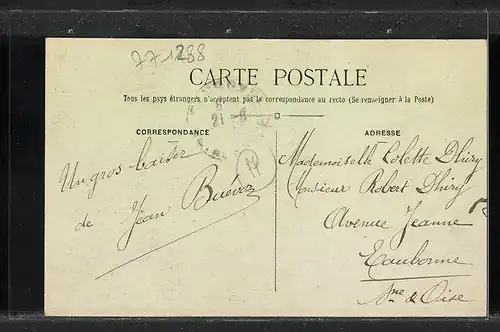 77-1288
CARTE POSTALE
Tous les pays étrangers n'acceptent pas la correspondance au recto (Se renseigner à la Poste)
CORRESPONDANCE
Un gros baiser
de Jean
ADRESSE
Mademoiselle Colette Dhiry
Monsieur Robert Dhiry
Avenue Jeanne
Eaubonne
Sne & Oise